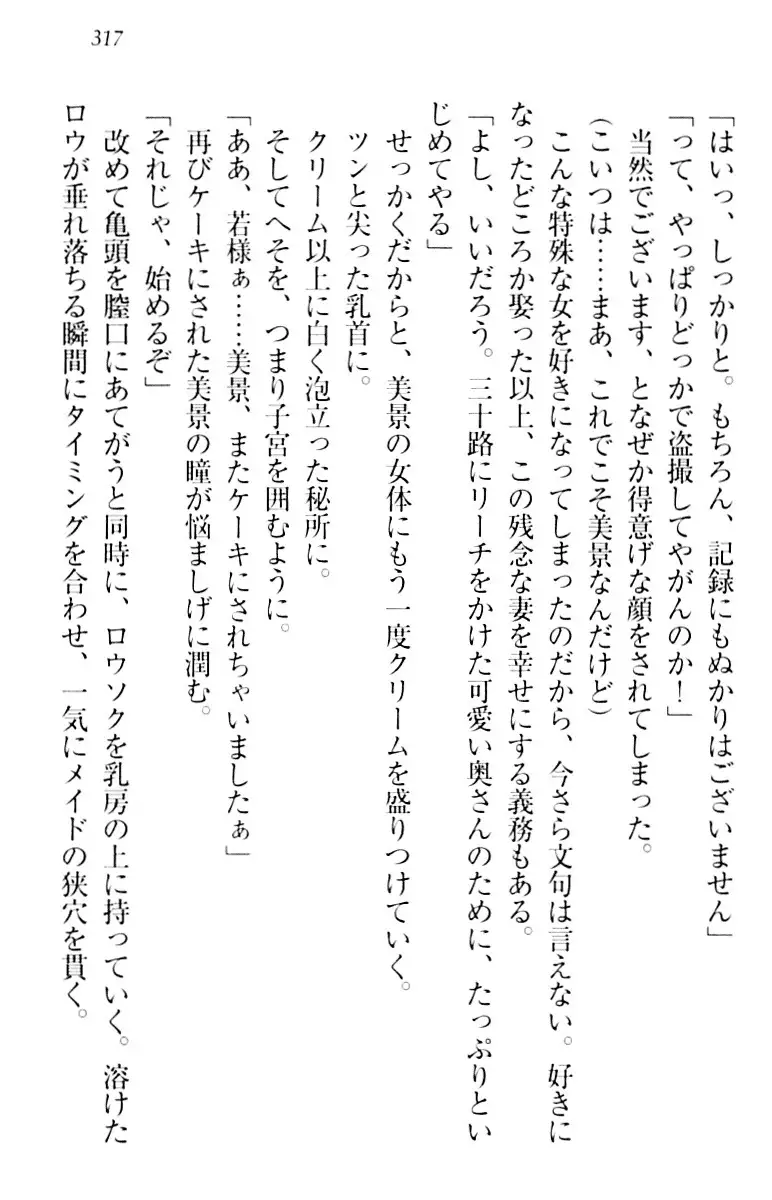 317
「はいっ、しっかりと。もちろん、記録にもぬかりはございません」
「って、やっぱりどっかで盗撮してやがんのか！」
当然でございます、となぜか得意げな顔をされてしまった。
(こいつは……まあ、これでこそ美景なんだけど)
こんな特殊な女を好きになってしまったのだから、今さら文句は言えない。好きに
なったどころか娶った以上、この残念な妻を幸せにする義務もある。
「よし、いいだろう。三十路にリーチをかけた可愛い奥さんのために、たっぷりとい
じめてやる」
せっかくだからと、美景の女体にもう一度クリームを盛りつけていく。
ツンと尖った乳首に。
クリーム以上に白く泡立った秘所に。
そしてへそを、つまり子宮を囲むように。
「ああ、若様ぁ……美景、またケーキにされちゃいましたぁ」
再びケーキにされた美景の瞳が悩ましげに潤む。
「それじゃ、始めるぞ」
改めて亀頭を膣口にあてがうと同時に、ロウソクを乳房の上に持っていく。溶けた
ロウが垂れ落ちる瞬間にタイミングを合わせ、一気にメイドの狭穴を貫く。